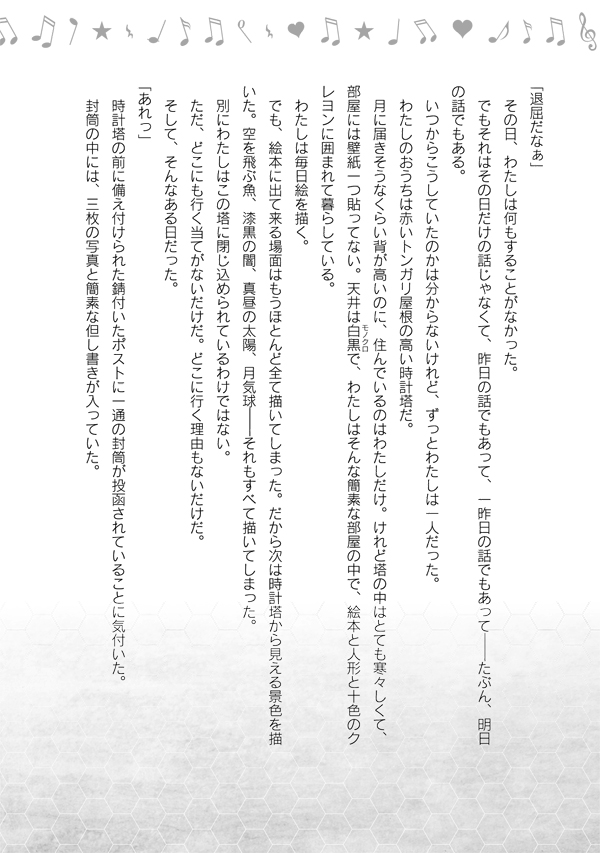 「退屈だなぁ」
その日、わたしは何もすることがなかった。
でもそれはその日だけの話じゃなくて、昨日の話でもあって、一昨日の話でもあって――たぶん、明日
の話でもある。
いつからこうしていたのかは分からないけれど、ずっとわたしは一人だった。
わたしのおうちは赤いトンガリ屋根の高い時計塔だ。
月に届きそうなくらい背が高いのに、住んでいるのはわたしだけ。けれど塔の中はとても寒々しくて、
部屋には壁紙一つ貼ってない。天井は白黒モノクロで、わたしはそんな簡素な部屋の中で、絵本と人形と十色のク
レヨンに囲まれて暮らしている。
わたしは毎日絵を描く。
でも、絵本に出て来る場面はもうほとんど全て描いてしまった。だから次は時計塔から見える景色を描
いた。空を飛ぶ魚、漆黒の闇、真昼の太陽、月気球――それもすべて描いてしまった。
別にわたしはこの塔に閉じ込められているわけではない。
ただ、どこにも行く当てがないだけだ。どこに行く理由もないだけだ。
そして、そんなある日だった。
「あれっ」
時計塔の前に備え付けられた錆付いたポストに一通の封筒が投函されていることに気付いた。
封筒の中には、三枚の写真と簡素な但し書きが入っていた。